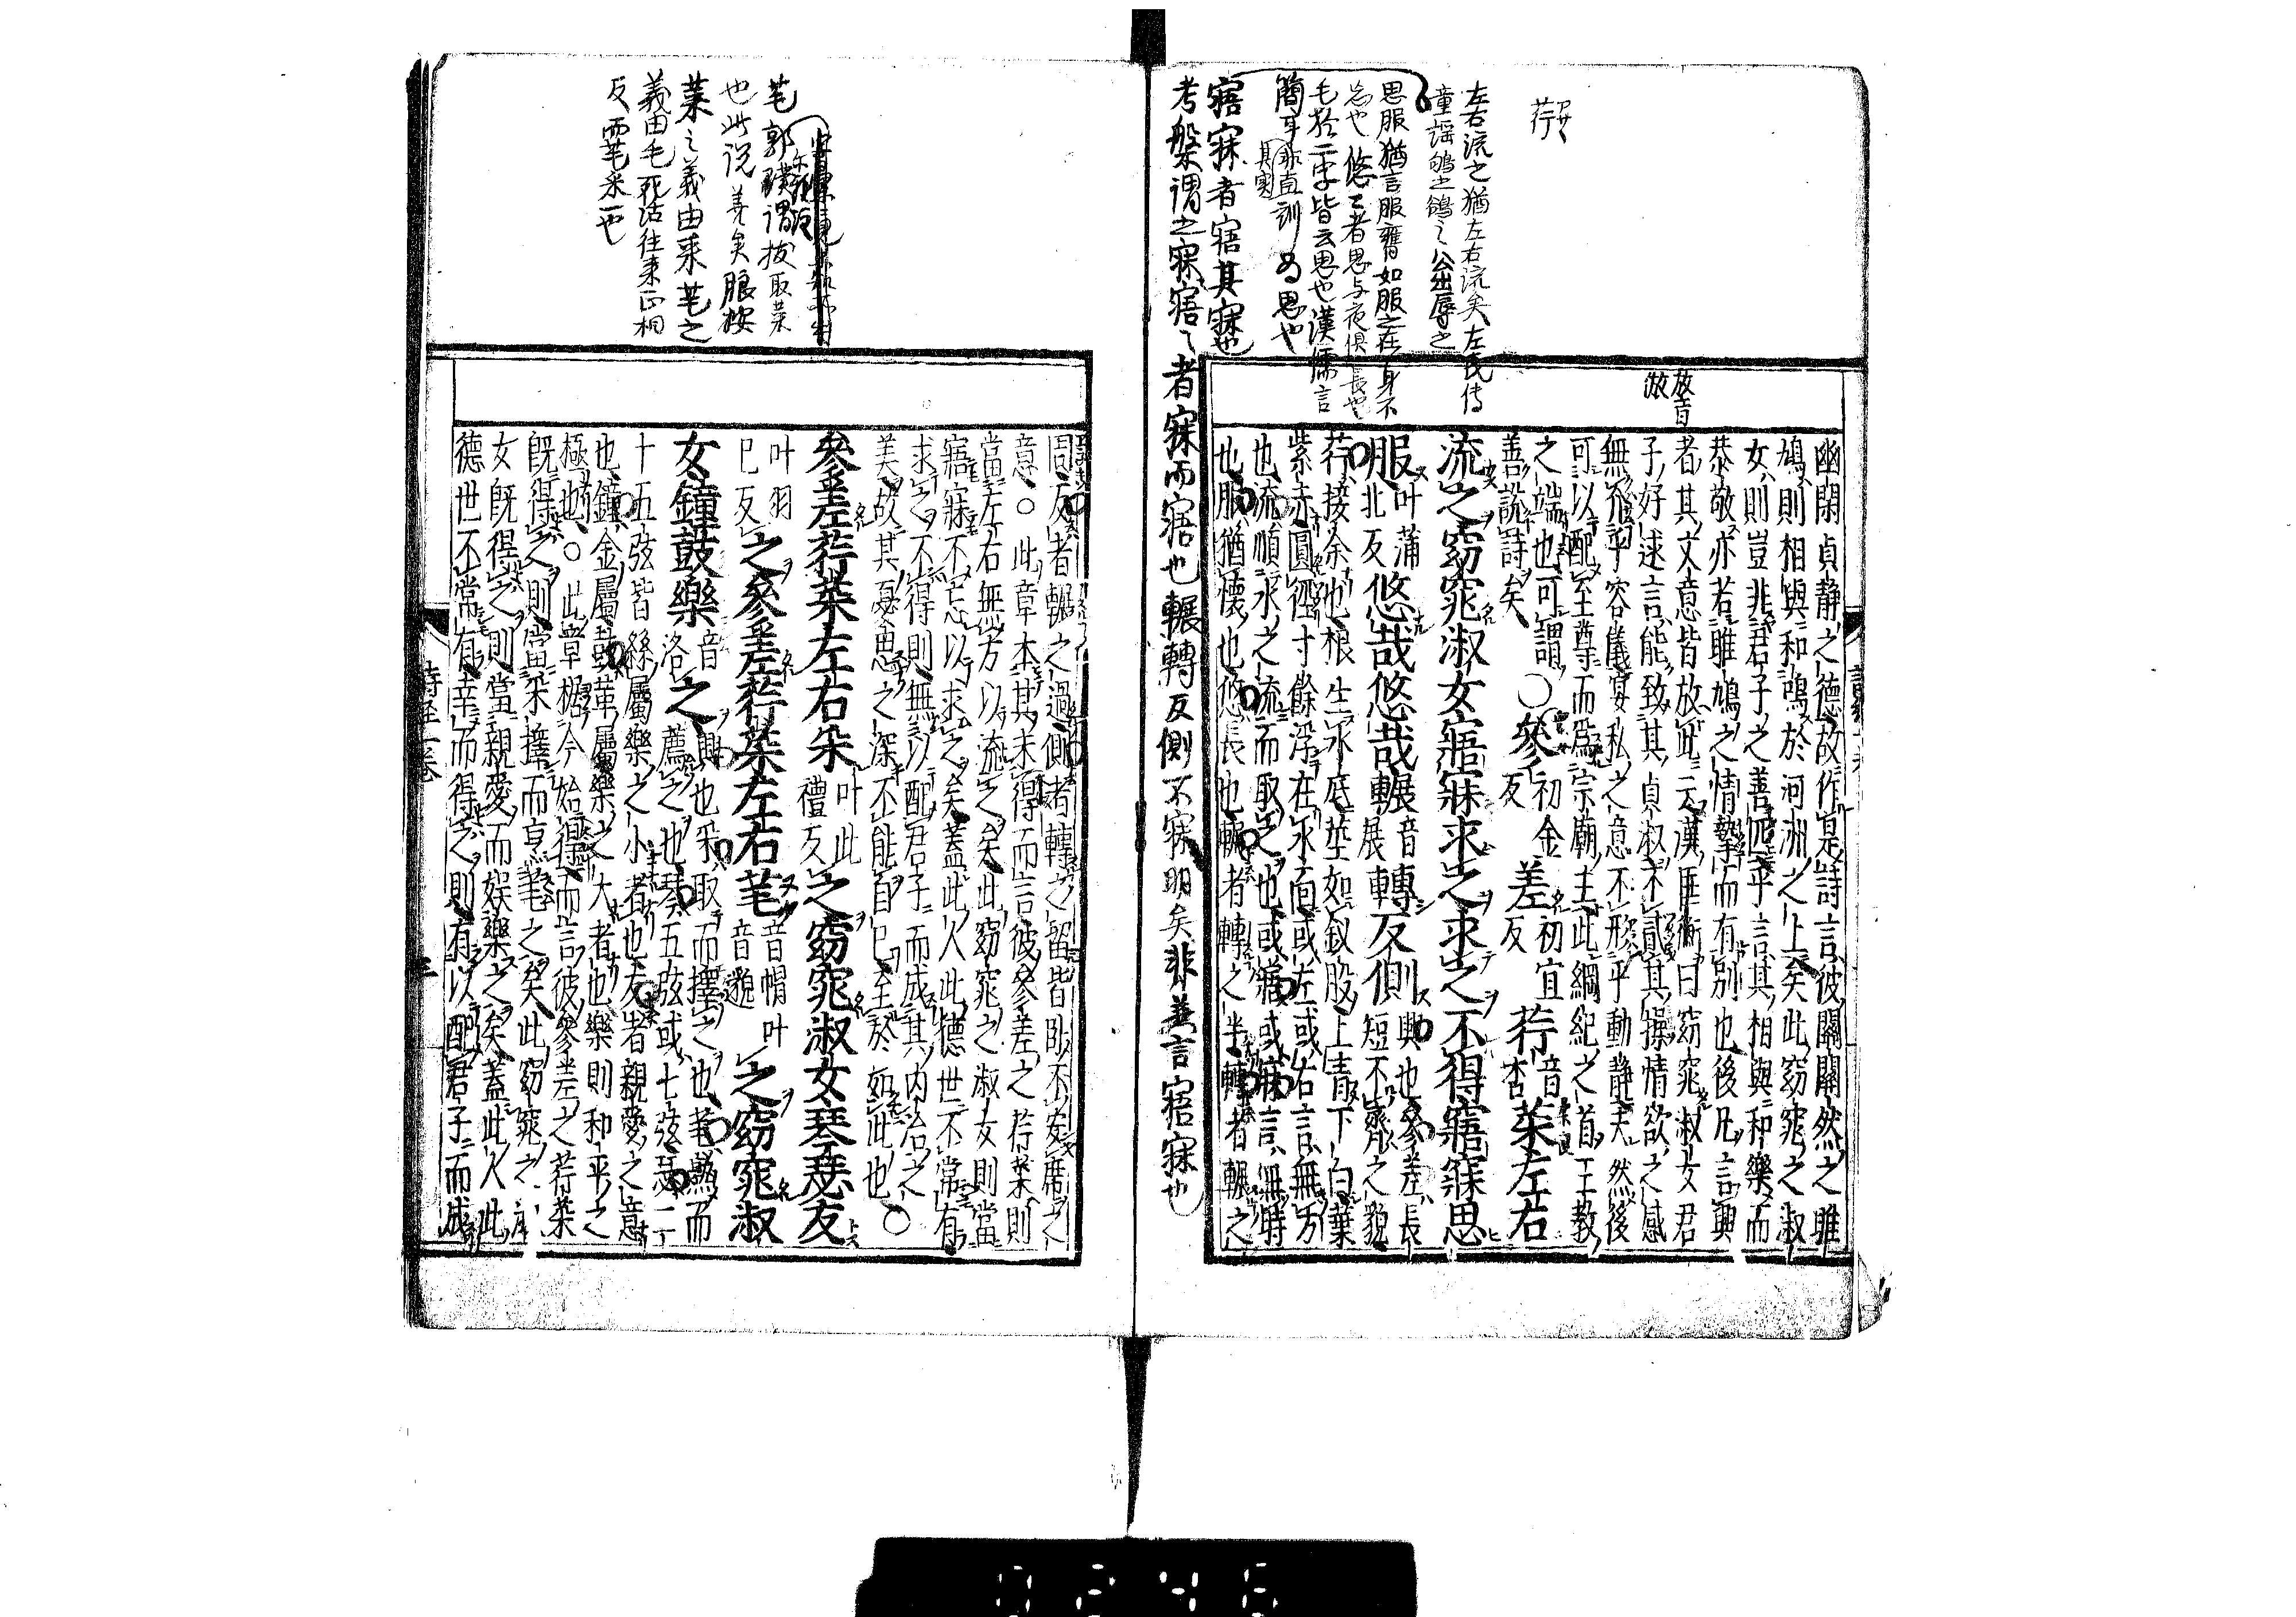 荇
左右流之猶左右流矣左氏傳
童謡鴝之鵒之公出辱之
思服猶言服膺如服之在身不
忘也悠〻者思与夜俱長也
毛於二字皆云思也漢儒言
簡耳非直訓為思也
其実
寤寐者寤其寐也
考槃謂之寐寤〻者寐而寤也輾轉反側不寐明矣非並言寤寐也
放音
放
幽閑貞靜之德故作是詩言彼關關然之雎
鳩則相與和鳴於河洲之上矣此窈窕之淑
女則豈非君子之善匹乎言其相與和樂而
恭敬亦若雎鳩之情摯而有別也後凡言興
者其文意皆放此云漢匡衡曰窈窕淑女君
子好逑言能致其貞淑不貳其操情欲之感
無介乎容儀宴私之意不形乎動靜夫然後
可以配至尊而爲宗廟主此綱紀之首王教
之端也可謂善說詩矣
○參初金反差初宜反荇音杏菜左右
流之窈窕淑女寤寐求之求之不得寤寐思
服叶蒲北反悠哉悠哉輾音展轉反側興也參差長
短不齊之貌
荇接余也根生水底莖如釵股上青下白葉
紫赤圓徑寸餘浮在水面或左或右言無方
也流順水之流而取之也或寤或寐言無時
也服猶懷也悠長也輾者轉之半轉者輾之
周反者輾之過側者轉之留皆臥不安席之
意○此章本其未得而言彼參差之荇菜則
當左右無方以流之矣此窈窕之淑女則當
寤寐不忘以求之矣蓋此人此德世不常有
求之不得則無以配君子而成其內治之
美故其憂思之深不能自已至於如此也○
參差荇菜左右采叶此禮反之窈窕淑女琴瑟友
叶羽已反之參差荇菜左右芼音帽叶音邈之窈窕淑
女鐘鼓樂音洛之興也采取而擇之也芼熟而
薦之也琴五弦或七弦瑟二
十五弦皆絲屬樂之小者也友者親愛之意
也鐘金屬鼓革屬樂之大者也樂則和平之
極也○此章據今始得而言彼參差之荇菜
旣得之則當采擇而亨芼之矣此窈窕之淑
女旣得之則當親愛而娛樂之矣蓋此人此
德世不常有幸而得之則有以配君子而成
詩經一卷
芼郭璞謂拔取菜
也此説善矣腹按
菜之義由采芼之
義由毛死活往来正相
反而芼采一也